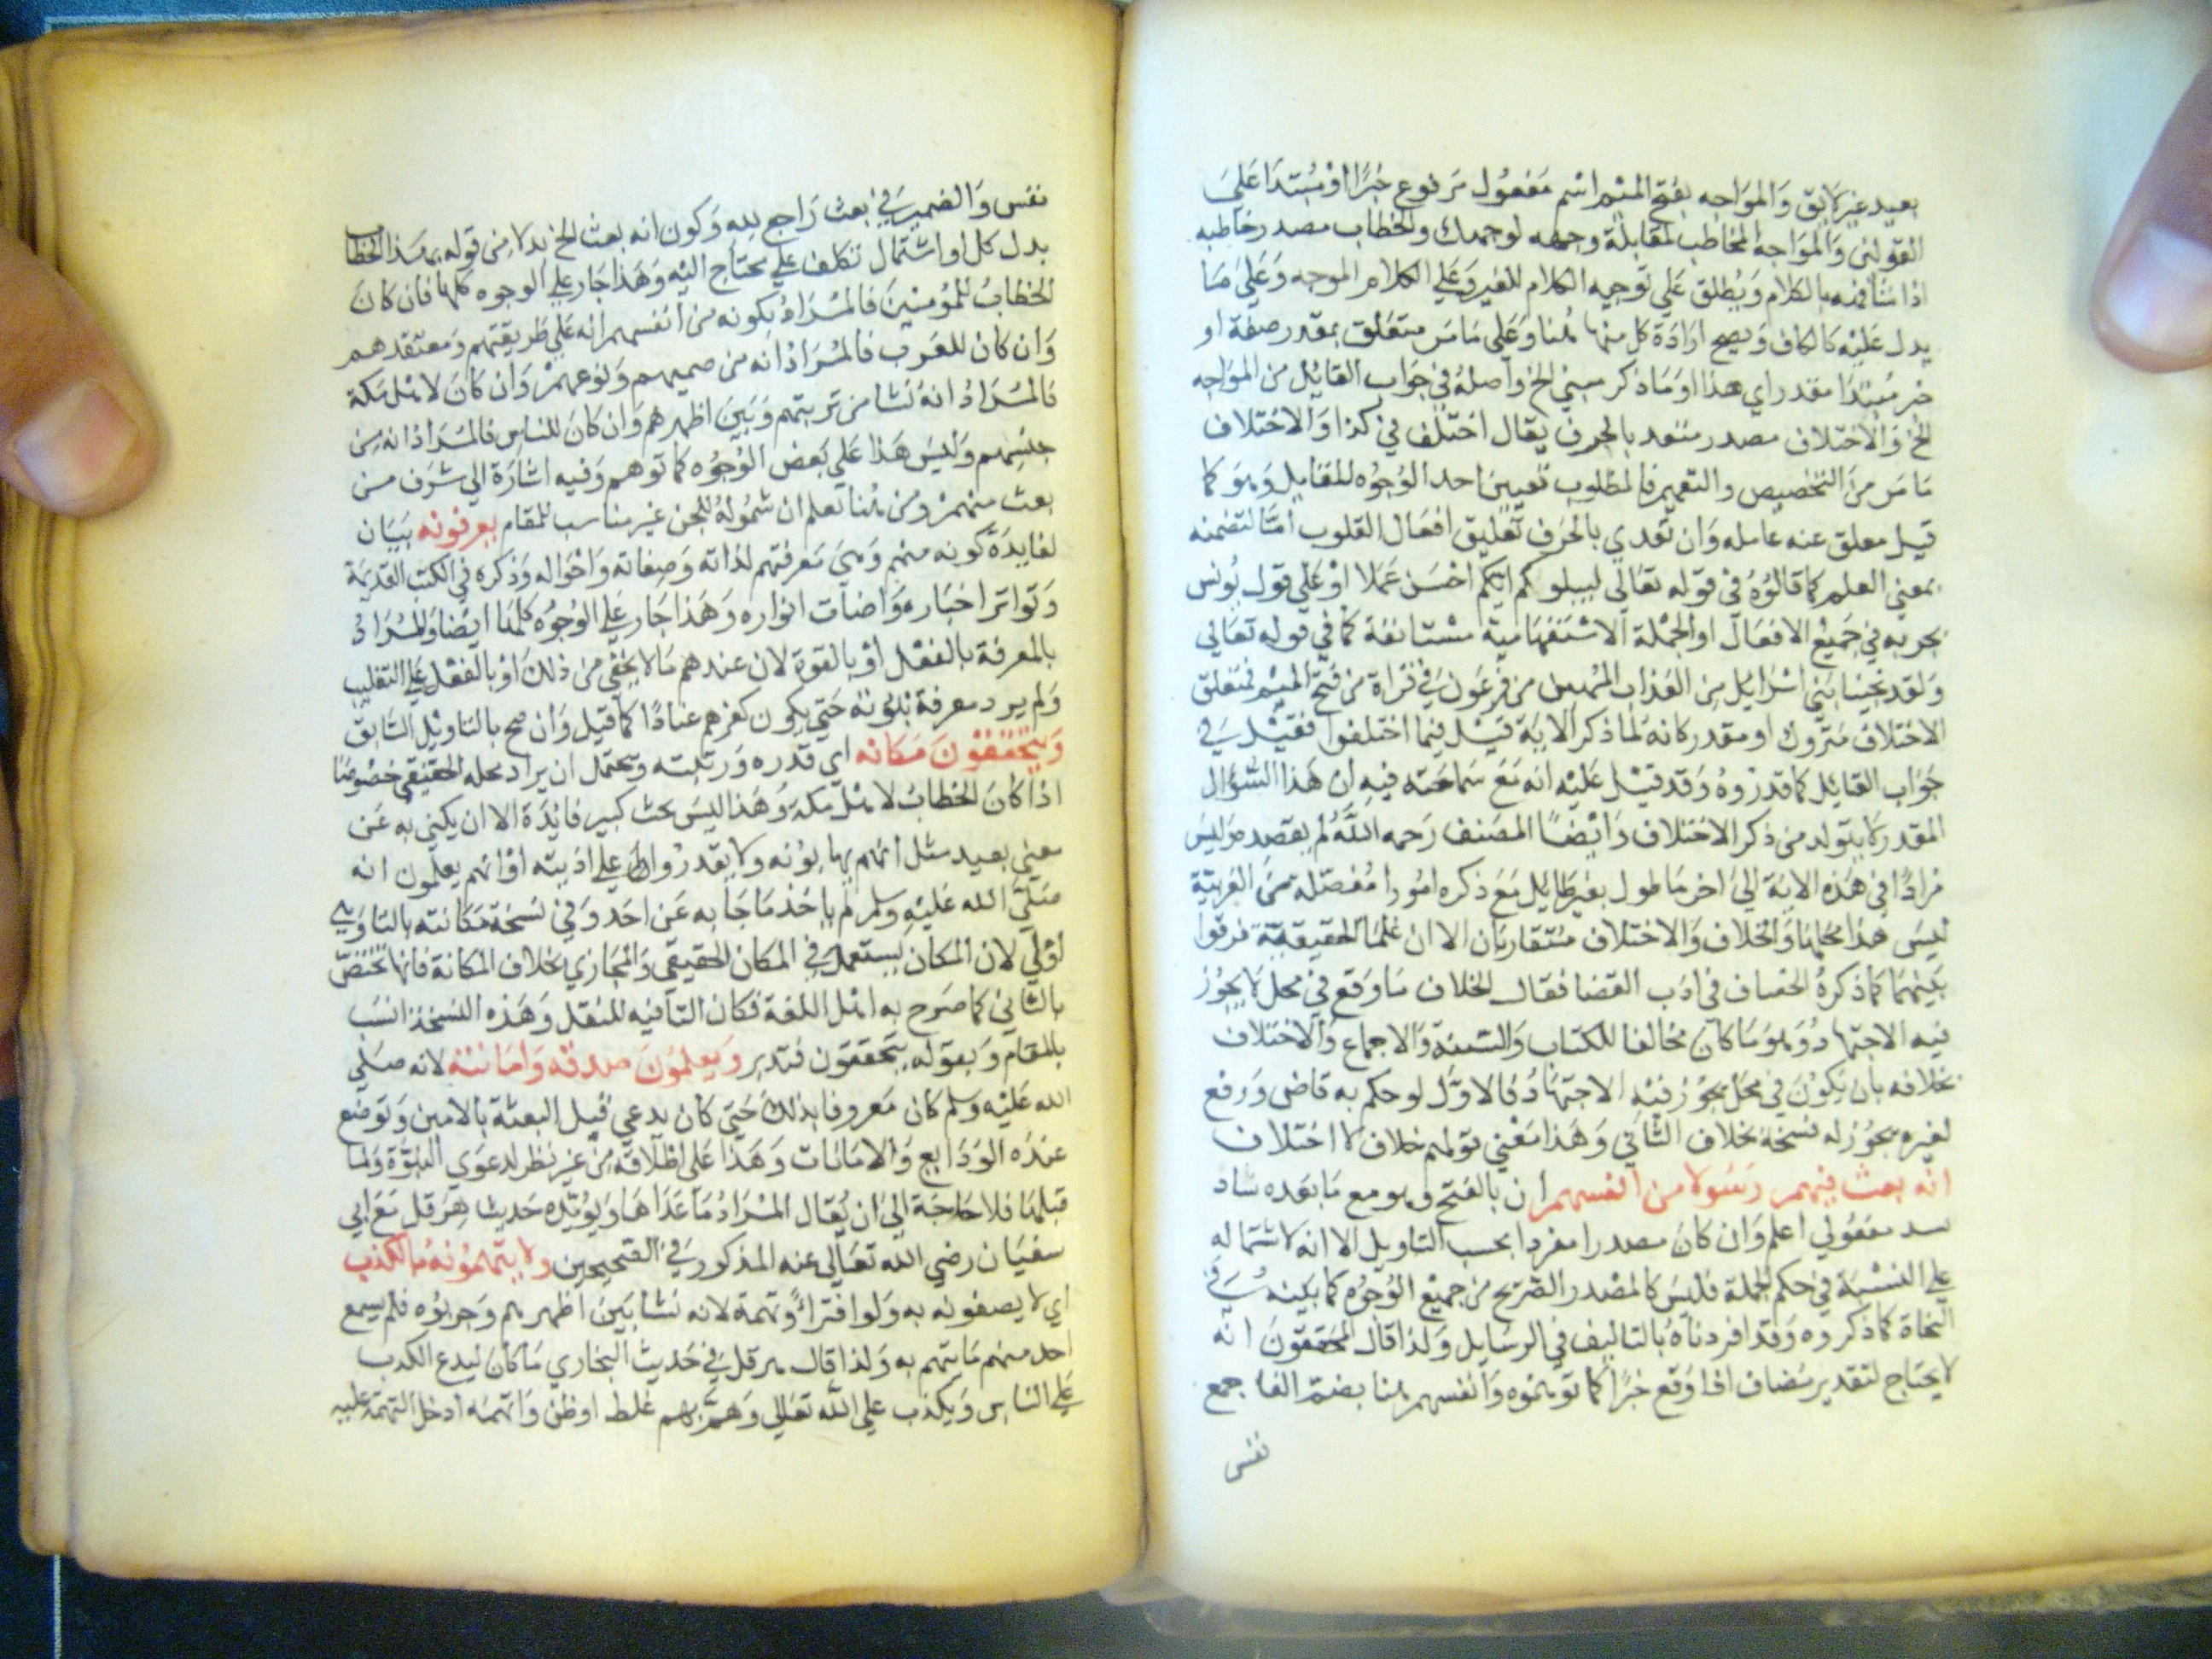 بعيد غير لايق وَالموَاجه بفتح الميْم اسْم مَفعُول مَرفوع خبرًا اوْ مُبْتدَا عَليَ
القولين وَالموَاجه المخَاطب لمقابلة وجهه لوجهك وَالخطَاب مصدر خاطبه
اذا شافهه بالكلام وَيُطلق عَلي توجيه الكلام للغير وَعَلي الكلام الموجه وَعَليَ مَا
يدل عَليْه كالكاف وَيصح ارَادَة كل منها هُنا وَعَلى مَا مَر متعَلق بمقدر صفة او
خبر مُبتدَا مقدر اي هذا اوْ مَا ذكر مبني الخ وَاصلهُ في جَوَاب القائِل من الموَاجه
الخ وَالاختلاف مصدر متعد بالحرف يقَال اختلف في كذا وَالاختلاف
مَا مَر منَ التخصيص والتعميم فالمطلوب تعيين احد الوُجُوه للمقابل وَهوَ كما
قيل معلق عنه عامله وَان تعَدي بالحَرف تعْليق افعَال القلوب امَّا لتضمنه
بمعني العلم كما قالوُهُ في قوله تعَالي ليبلوكم ايكم احْسَن عَملا اوْ عَلي قول يُونس
بجربه في جَميْع الافعَال او الجمْلة الاسْتفهَامية مسْتانفة كما في قوله تعَالي
وَلقد نجينا بَني اسْرَايل من العَذاب المهين من فِرعَون في قرَاة من فتح الميْم فمتعَلق
الاختلاف مَتروك او مقدر كانهُ لما ذكر الاية قيْل فيما اختلفوا فقيْل في
جَوَاب القائِل كما قدروهُ وَقد قيْل عَليْه انه مَعَ سَماجَته فيه ان هَذا السُّؤال
المقدر لا يتولد من ذكر الاختلاف وَايْضًا المصَنف رَحمه اللَّهُ لم يقصد وَليسَ
مرادًا في هَذه الاية اليَ اخر مَا طول بغير طايل مَعَ ذكره امُورا مُفصَّلة من العَربيّة
ليسَ هذا محلهَا وَالخلاف وَالاختلاف متقاربَان الا ان علما الحنفيَّة فرقوا
بَينهمَا كما ذكرهُ الخصاف في ادَب القضا فقال الخلاف مَا وَقع في محل لا يجُوز
فيه الاجتهادُ وَهوَ مَا كانَ مخالفا للكتاب وَالسُّنة وَالاجماع وَالاختلاف
بخلافه بان يَكوُن في مَحَل يجوُز فيْه الاجتهَادُ فالاوَّل لو حكم به قاضى وَرفع
لغيره يجوُز له نسخهُ بخلاف الثاني وَهَذا مَعْني قولهم خلاف لا اختلاف
انه بعث فيهم رسُولا من انفسهم ان بالفتح وهو مع مَا بَعده سَاد
مسد مفعُولي اعلم وَان كانَ مصدرا مفردا بحسب التاويل الا انه لاشتماله
علي النسْبَة في حكم الجملة فليسَ كالمصْدر الصَّريح من جميْع الوُجُوه كما بَينه في
النحَاة كما ذكروه وَقد افردناهُ بالتاليف في الرسَايل وَلذا قال المحَققوُنَ انه
لا يحتَاج لتقدير مُضاف اذا وَقع خبرًا كما توهَّموُه وَانفسهم هنا بضمّ الفا جمع
نفس
نفس وَالضمير في بعث رَاجع للِه وَكون انه بعث الخ بدلا من قوله بهَذا الخطاب
بدل كل او اشتمال تكلف غلي محتاج اليْه وَهَذا جَار علي الوجوه كلها فان كانَ
الخطابُ للمُؤمنينَ فالمرَادُ بكونه من انفسهم انه عَلي طريقتهم وَمعتقدهم
وَان كان للعَرب فالمرَادُ انه من صميمهم وَنوعهمْ وَان كانَ لاهل مَكة
فالمرَادُ انهُ نشا من تربيتهم وَبَين اظهرهم وَان كانَ للناس فالمرَادُ انه من
جنسِهم وَليسَ هَذا عَلي بَعض الوُجُوه كما توهم وَفيه اشارة الي شرَف من
بعث منهمْ وَمن هُنا تعلم ان شموُله للجن غير مناسب للمقام يعرفونه بيَان
لفايدَة كونه منهم وَهيَ مَعرفتهم لذاته وَصِفاته وَاحْوَاله وَذكره في الكتب القديمَة
وَتواتر اخبَاره وَاضاَت انواره وَهَذا جَار عَلي الوُجُوه كلهَا ايْضا وَالمرَادُ
بالمعرفة بالفعْل اوْ بالقوة لان عندهم مَا لا يخفي من ذلك اَوْ بالفعْل علي التغليب
وَلم يرد معرفة نبُوته حَتي يكون كفرهم عنادًا كما قيل وَان صح بالتاوِيْل السَّابق
وَيتحققوُنَ مَكانه اي قدره وَرتبته وَيحتمل ان يراد محله الحقيقي خصُوصا
اذا كانَ الخطابُ لاهْل مَكة وَهَذا ليسَ تحته كبير فائدَة الا ان يكني به عَن
معني بعيد مثل انهم يهابوُنه ولا يقدرُوا علي اذيته اوْ انهم يعلمون انه
صَليّ الله عَليْه وسلم لم ياخذ مَا جَا به عَن احَد وَفي نسْخة مَكانته بالتا وَهي
اوْلي لان المكان يستعمل في المكان الحقيقي وَالمجَازي بخلاف المكانة فانها تختصّ
بالثاني كما صَرح به اهْل اللغة فكان التا فيه للنقل وَهَذه النسخة انسَب
بالمقام وَبقوله يتحَققون فتدبر وَيعلموُنَ صِدقه وَامَانته لانه صَلي
الله عَليْه وسلم كان مَعروفا بذلك حَتي كان يدعي قبل البعثة بالامين وَتوضع
عندَه الوَدَايع وَالامَانات وَهَذا عَلي اطلاقه منْ غير نظر لدعوَي النبُوَّة وَلما
قبلهَا فلا حاجَة الي ان يُقال المرَادُ مَا عَدَاهَا وَيُؤيّده حَديث هِرَقل مَعَ ابي
سفيَان رضي الله تعَالي عنه المذكور في الصَّحيحين ولا يتهموُنهُ بالكذب
اي لا يصفونه به وَلو افترَاءً وَتهمة لانه نشا بَينَ اظهرهم وَجربوُه فلم يسمع
احد منهم مَا يتهم به وَلذا قال هرقل في حَديث البخاري مَا كانَ ليدع الكذب
عَلي النَاس وَيَكذب علي اللَّه تعَالي وَهمَّ بهم غلط او ظن وَاتهمَه ادخل التهمَة عليه